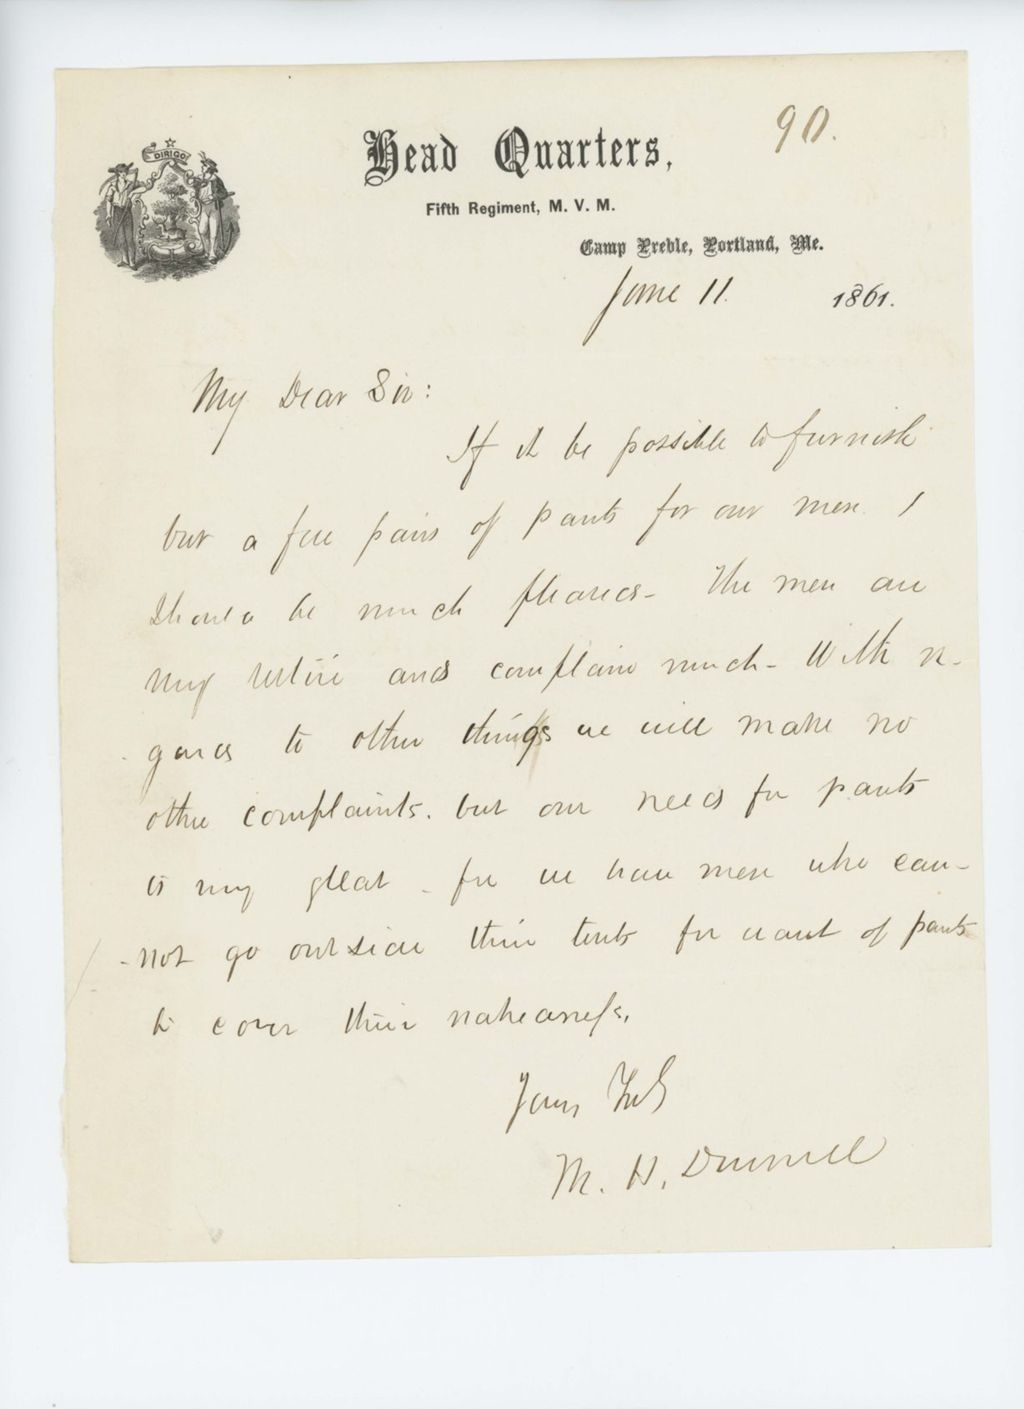 90.
DIRIGO
Head Quarters,
Fifth Regiment, M. V. M.
Camp Preble, Portland, Me.
June 11 1861.
My Dear Sir:
If it be possible to furnish
but a few pairs of pants for our men I
should be much pleased - The men are
very restive and complain much - With re-
gard to other things we will make no
other complaints. but our need for pants
is very great - for we have men who can-
-not go outside their tents for want of pants
to cover their nakedness.
Yours Truly
M. H. Dunnell